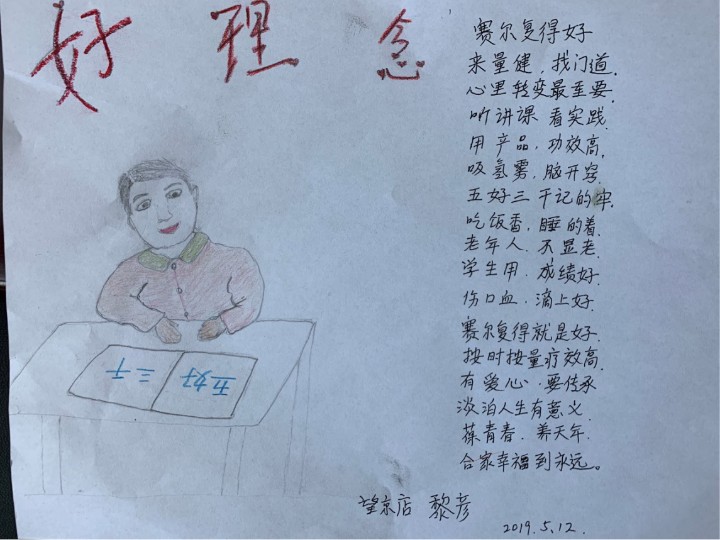 好理念
赛尔复得好
来量健，找门道，
心里转变最至要
听讲课 看实践
用产品，功效高，
吸氢雾，脑开窍
五好三干记的牢
吃饭香，睡的着
老年人，不显老，
学生用，成绩好
伤口血，滴上好
赛尔复得就是好，
按时按量疗效高
有爱心，要传承
淡泊人生有意义
葆青春，养天年
合家幸福到永远。
五好
三干
望京店 黎彦
2019.5.12.